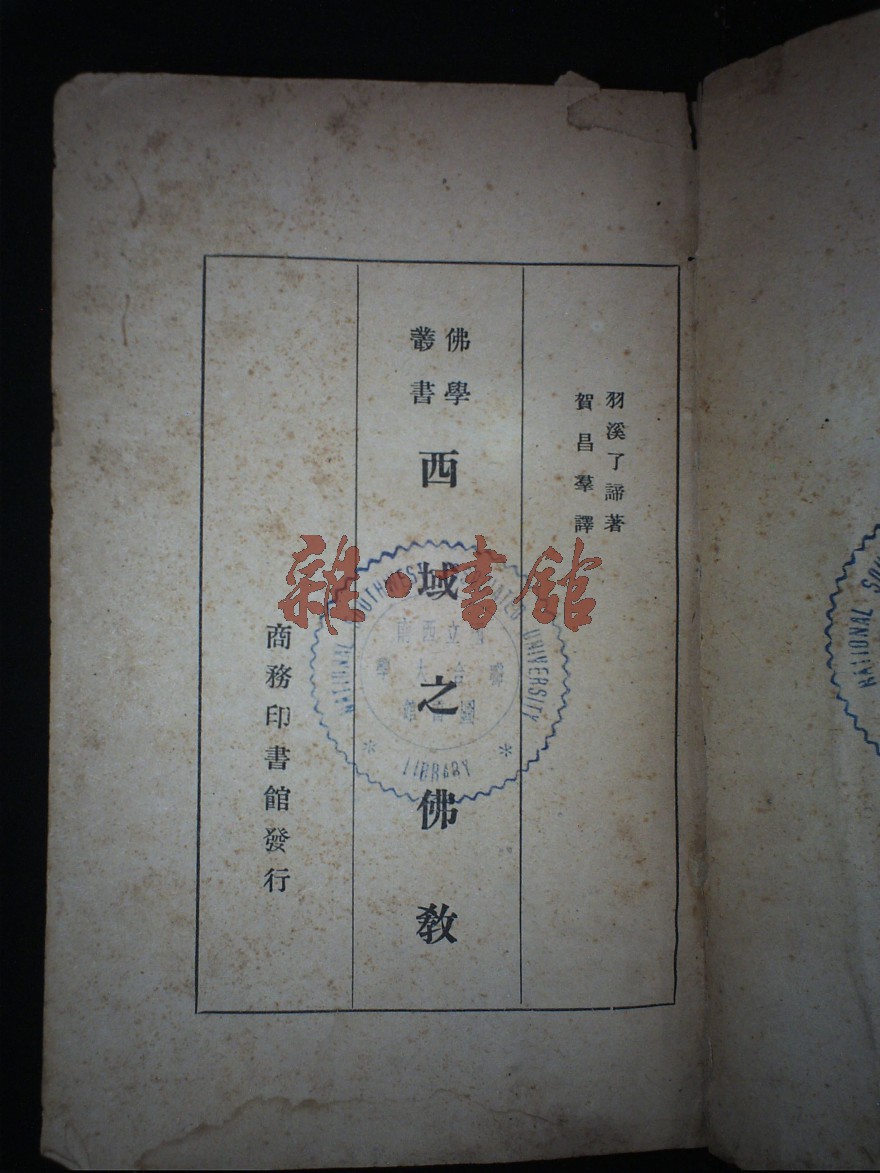 羽溪了諦著
賀昌羣譯
佛學
叢書
西域之佛教
商務印書館發行
雜·書館
NATIONAL SOUTHWEST ASSOCIATED UNIVERSITY
國立西南
聯合大學
圖書館
LIBRARY
NATIONAL SOU